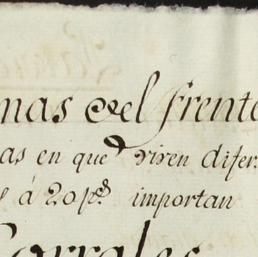 mas del frente
as en que viven difer
s á 20 p.s importan
Corrales